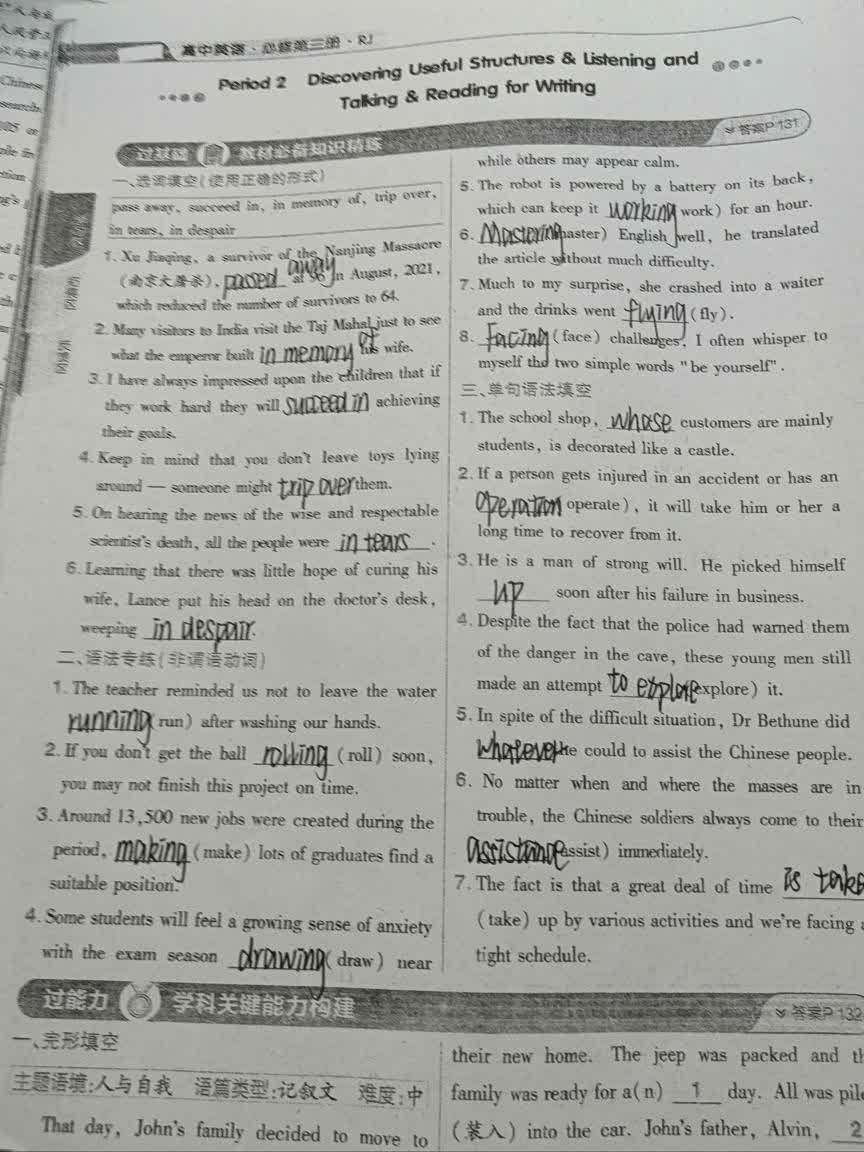 高中英语·必修第三册·RJ
Period 2 Discovering Useful Structures & Listening and
Talking & Reading for Writing
过基础 教材必备知识精练
答案P131
一、选词填空(使用正确的形式)
pass away, succeed in, in memory of, trip over,
in tears, in despair
1. Xia Jiaqing, a survivor of the Nanjing Massacre
(南京大屠杀), passed away at 96 in August, 2021,
which reduced the number of survivors to 64.
2. Many visitors to India visit the Taj Mahal just to see
what the emperor built in memory of his wife.
3. I have always impressed upon the children that if
they work hard they will succeed in achieving
their goals.
4. Keep in mind that you don't leave toys lying
around — someone might trip over them.
5. On hearing the news of the wise and respectable
scientist's death, all the people were in tears.
6. Learning that there was little hope of curing his
wife, Lance put his head on the doctor's desk,
weeping in despair.
二、语法专练(非谓语动词)
1. The teacher reminded us not to leave the water
running (run) after washing our hands.
2. If you don't get the ball rolling (roll) soon,
you may not finish this project on time.
3. Around 13,500 new jobs were created during the
period, making (make) lots of graduates find a
suitable position.
4. Some students will feel a growing sense of anxiety
with the exam season drawing (draw) near
while others may appear calm.
5. The robot is powered by a battery on its back,
which can keep it working (work) for an hour.
6. Mastering (master) English well, he translated
the article without much difficulty.
7. Much to my surprise, she crashed into a waiter
and the drinks went flying (fly).
8. Facing (face) challenges, I often whisper to
myself the two simple words "be yourself".
三、单句语法填空
1. The school shop, whose customers are mainly
students, is decorated like a castle.
2. If a person gets injured in an accident or has an
operation (operate), it will take him or her a
long time to recover from it.
3. He is a man of strong will. He picked himself
up soon after his failure in business.
4. Despite the fact that the police had warned them
of the danger in the cave, these young men still
made an attempt to explore (explore) it.
5. In spite of the difficult situation, Dr Bethune did
whatever he could to assist the Chinese people.
6. No matter when and where the masses are in
trouble, the Chinese soldiers always come to their
assistance (assist) immediately.
7. The fact is that a great deal of time is take
(take) up by various activities and we're facing a
tight schedule.
过能力 学科关键能力构建
答案P132
一、完形填空
主题语境:人与自我 语篇类型:记叙文 难度:中
That day, John's family decided to move to
their new home. The jeep was packed and th
family was ready for a(n) 1 day. All was pile
(装入) into the car. John's father, Alvin, 2